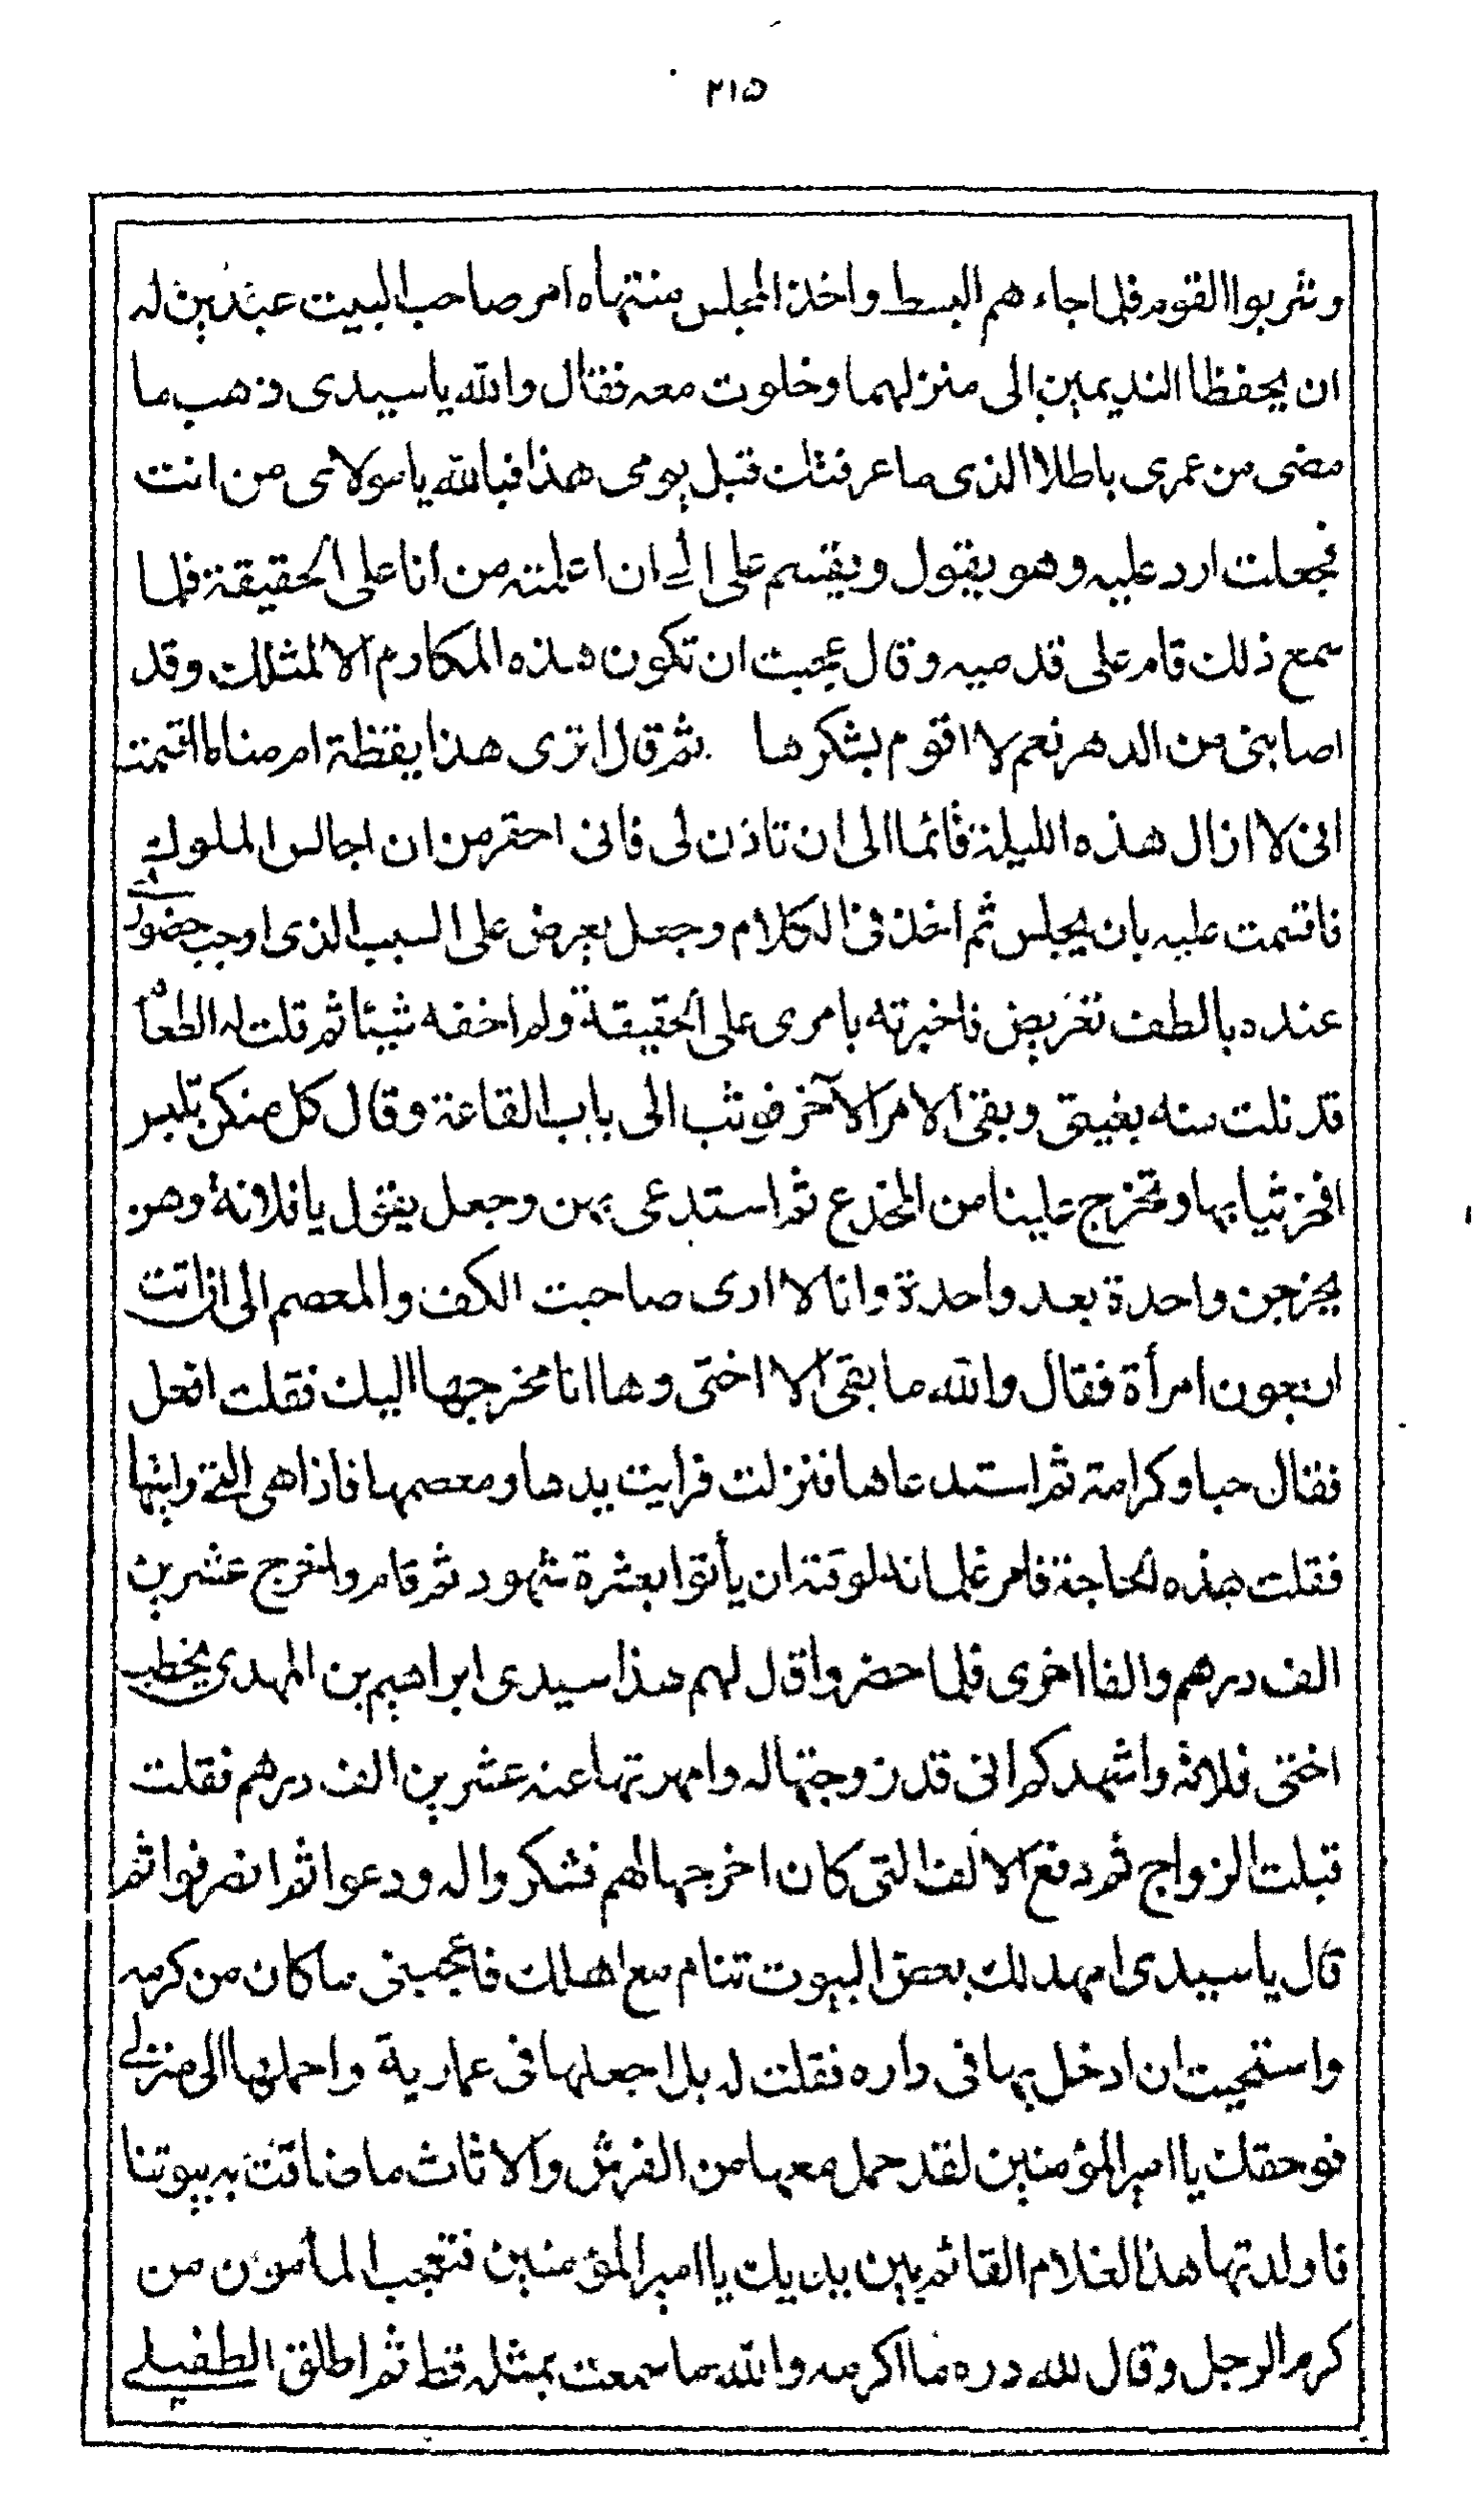 ٢١٥
وشربوا القوم فلما جاءهم البسط واخذ المجلس منتهاه امر صاحب البيت عبدين له
ان يحفظا النديمين الى منزلهما وخلوت معه فقال والله يا سيدى ذهب ما
مضى من عمرى باطلا الذى ما عرفتك قبل يومى هذا فبالله يا مولاى من انت
فجعلت ارد عليه وهو يقول ويقسم على الى ان اعلمته من انا على الحقيقة فلما
سمع ذلك قام على قدميه وقال عجبت ان تكون هذه المكارم الا لمثلك وقد
اصابنى من الدهر نعم لا اقوم بشكرها ثم قال اترى هذا يقظة ام مناما اقسمت
انى لا ازال هذه الليلة قائما الى ان تاذن لى فانى احقر من ان اجالس الملوك
فاقسمت عليه بان يجلس ثم اخذ فى الكلام وجعل يعرض على السبب الذى اوجب حضورى
عنده بالطف تعريض فاخبرته بامرى على الحقيقة ولم اخفه شيئا ثم قلت له الطعام
قد نلت منه بغيتى وبقى الامر الآخر فوثب الى باب القاعة وقال كل منكن تلبس
افخر ثيابها وتخرج علينا من المخدع ثم استدعى بهن وجعل يقول يا فلانة وهن
يخرجن واحدة بعد واحدة وانا لا ارى صاحبت الكف والمعصم الى ان اتت
اربعون امرأة فقال والله ما بقى الا اختى وها انا مخرجها اليك فقلت افعل
فقال حبا وكرامة ثم استدعاها فنزلت فرايت يدها ومعصمها فاذا هى التى رايتها
فقلت هذه الحاجة فامر غلمانه لوقته ان يأتوا بعشرة شهود ثم قام واخرج عشرين
الف درهم والفا اخرى فلما حضروا قال لهم هذا سيدى ابراهيم بن المهدى يخطب
اختى فلانه واشهدكم انى قد زوجتها له وامهرتها عنه عشرين الف درهم فقلت
قبلت الزواج ثم دفع الالف التى كان اخرجها لهم فشكروا له ودعوا ثم انصرفوا ثم
قال يا سيدى امهد لك بعض البيوت تنام مع اهلك فاعجبنى ما كان من كرمه
واستحيت ان ادخل بها فى داره فقلت له بل اجعلها فى عمارية واحملها الى منزلى
فوحقك يا امير المؤمنين لقد حمل معها من الفرش والاثاث ما ضاقت به بيوتنا
فاولدتها هذا الغلام القائم بين يديك يا امير المؤمنين فتعجب المأمون من
كرم الرجل وقال لله دره ما اكرمه والله ما سمعت بمثله قط ثم اطلق الطفيلى